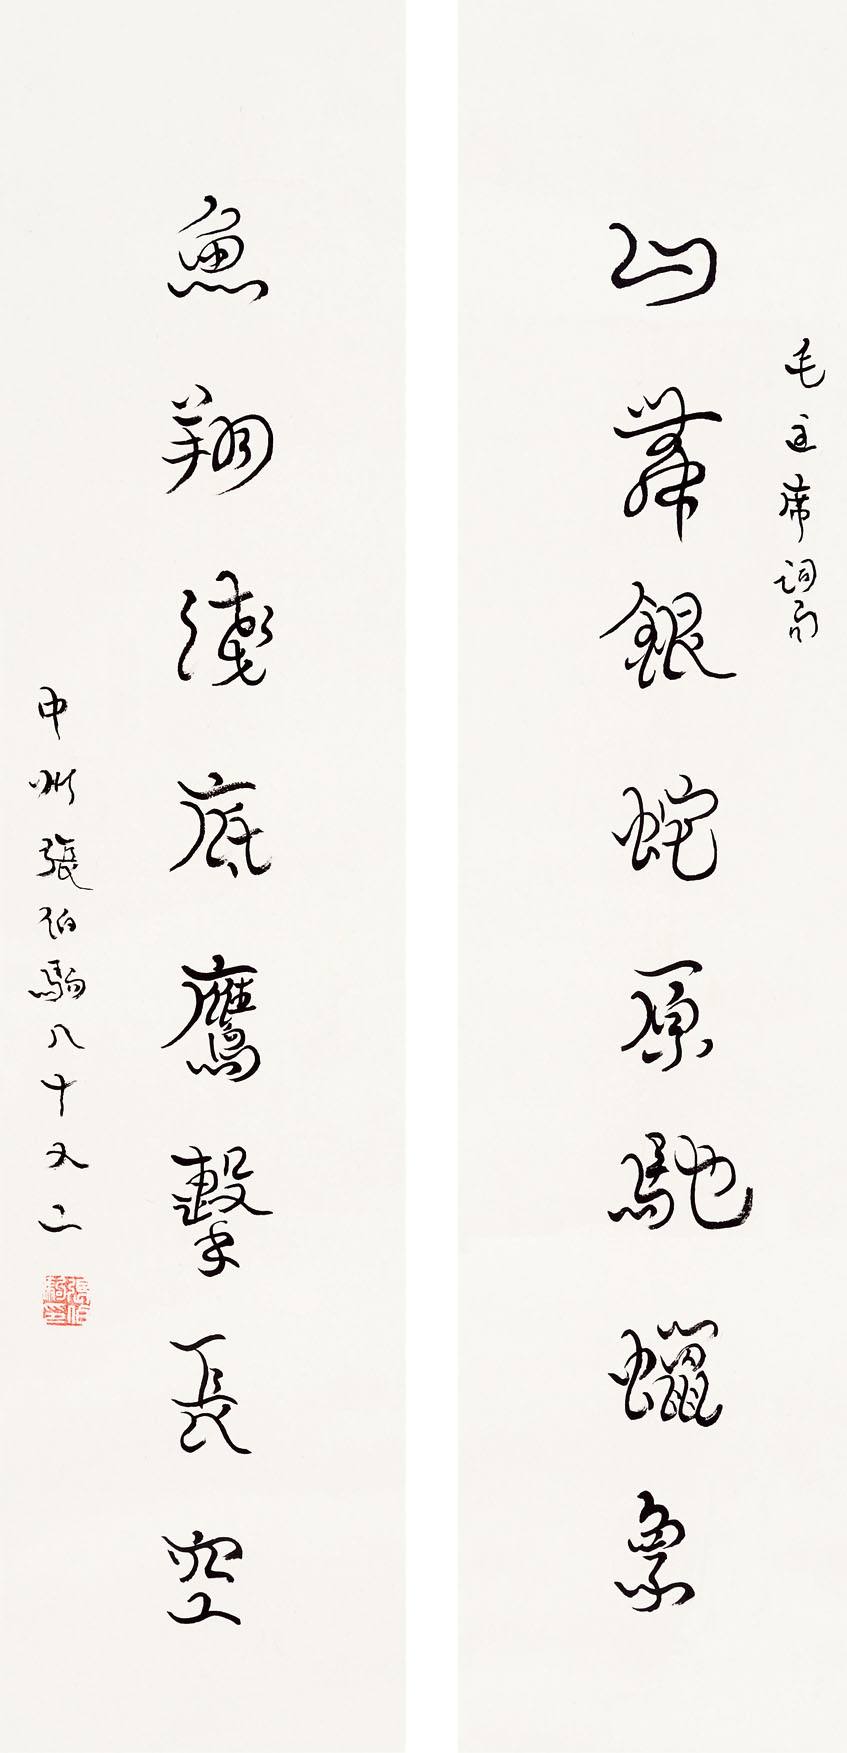 毛主席詞句
山舞銀蛇原馳蠟象
魚翔淺底鷹擊長空
中州張伯駒八十又二
張伯駒印